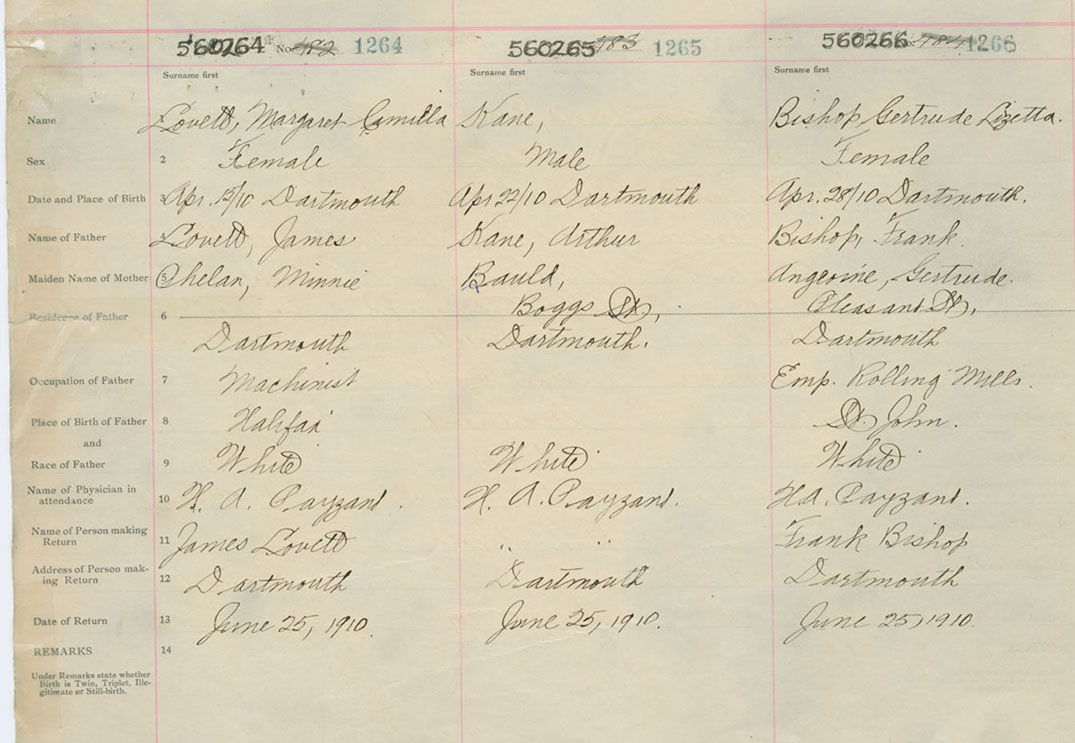 560264 No. 482 1264 560265 483 1265 560266 No. 484 1266
Surname first Surname first Surname first
Name Lovett, Margaret Camilla Kane, Bishop Gertrude Lizetta.
Sex 2 Female Male Female
Date and Place of Birth 3 Apr. 15/10 Dartmouth Apr 22/10 Dartmouth Apr. 28/10 Dartmouth.
Name of Father 4 Lovett, James Kane, Arthur Bishop, Frank.
Maiden Name of Mother 5 Phelan, Minnie Bauld, Angevine, Gertrude.
Boggs St, Pleasant St,
Residence of Father 6
Dartmouth Dartmouth. Dartmouth
Occupation of Father 7 Machinist Emp. Rolling Mills.
Place of Birth of Father 8 Halifax St John.
and
Race of Father 9 White White White
Name of Physician in
attendance 10 H. A. Payzant. H. A. Payzant. H.A. Payzant.
Name of Person making
Return 11 James Lovett " " Frank Bishop
Address of Person mak-
ing Return 12 Dartmouth Dartmouth Dartmouth
Date of Return 13 June 25, 1910. June 25, 1910. June 25, 1910.
REMARKS 14
Under Remarks state whether
Birth is Twin, Triplet, Ille-
gitimate or Still-birth.